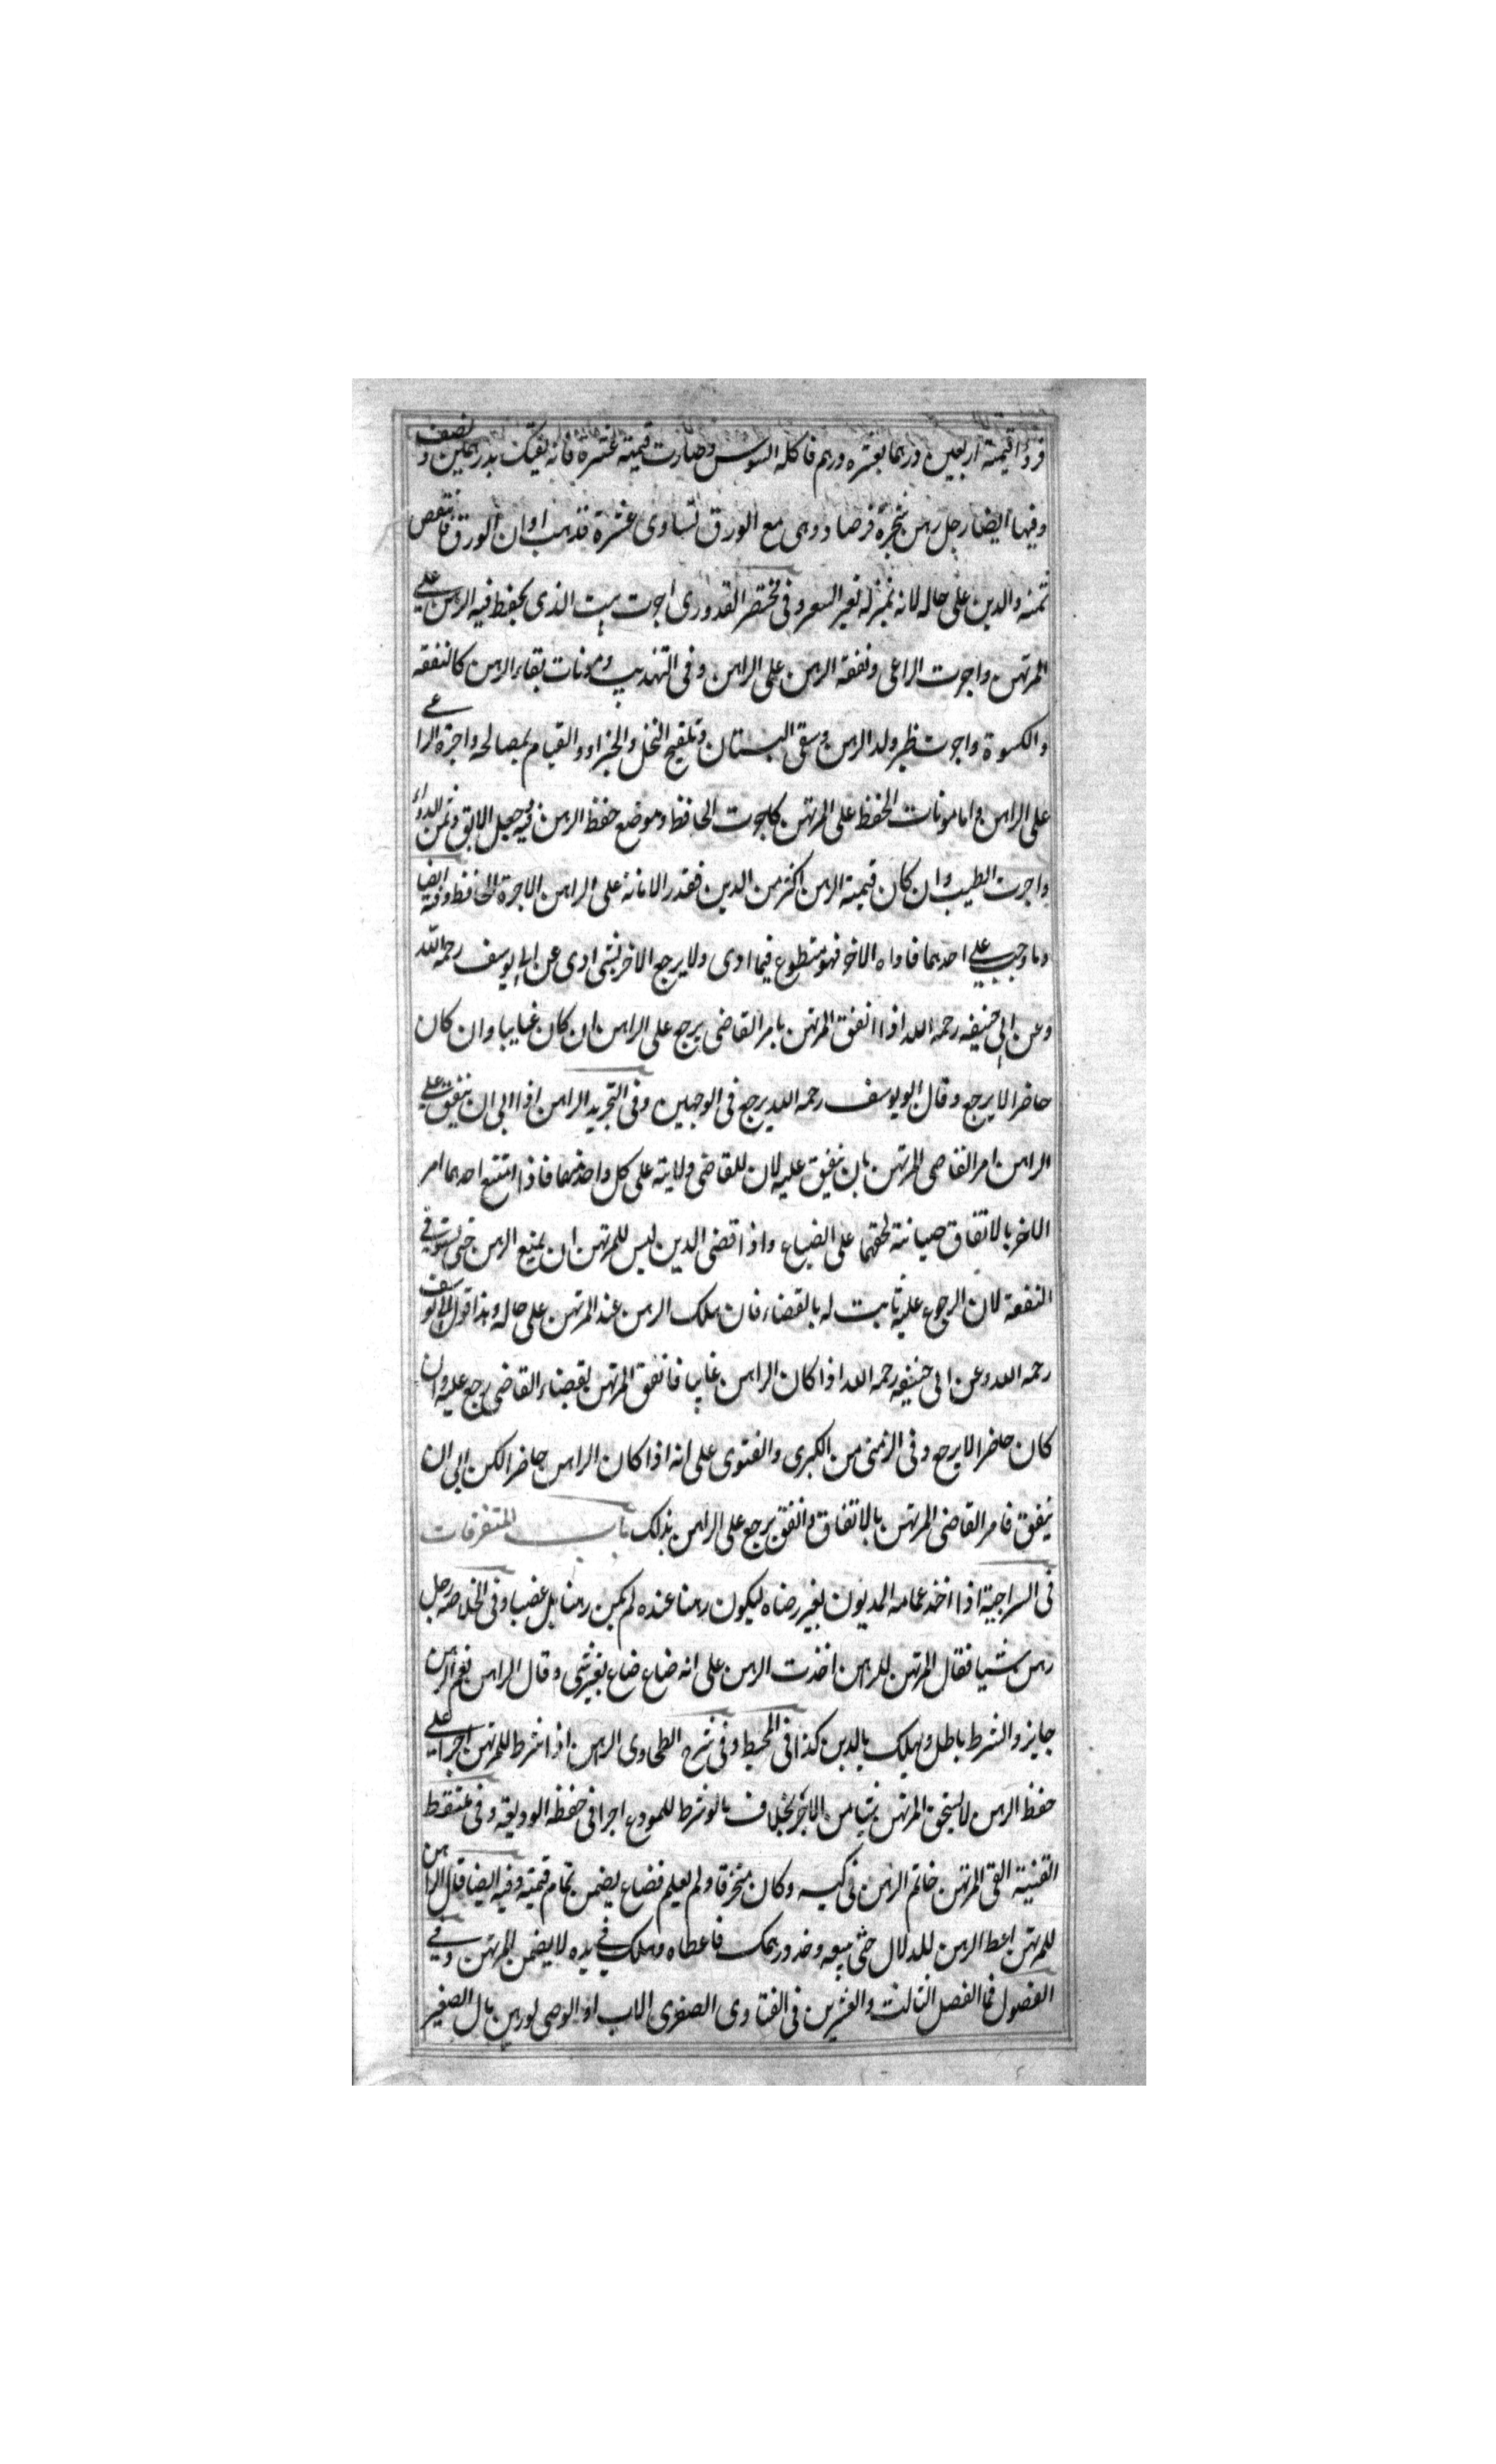 فروا قيمته اربعين درهما بعشره درهم فاكله السوس وصارت قيمته عشرة فانه يفتك بدرهمين و نصف
وفيها ايضا رجل رهن شجرة فرصاد وهى مع الورق تساوى عشرة فذهب اوان الورق فانتقص
ثمنه والدين على حاله لانه بمنزلة تغير السعر وفى مختصر القدورى اجرت بيت الذى يحفظ فيه الرهن على
المرتهن واجرت الراعى ونفقة الرهن على الراهن وفى التهذيب ومونات بقاء الرهن كالنفقه
والكسوة واجرت ظير ولد الرهن وسقى البستان وتلقيح النخل والجزاز والقيام بمصالحه واجرة الراعى
على الراهن واما مونات الحفظ على المرتهن كاجرت الحافظ وموضع حفظ الرهن فيه جعل الابق وثمن الدواء
واجرت الطبيب وان كان قيمته الرهن اكثر من الدين فقدر الامانة على الراهن الا اجرة الحافظ وفيه ايضا
وما وجب على احدهما فاداه الاخر فهو متطوع فيما ادى ولا يرجع الاخر بشى ادى عن ابى يوسف رحمه الله
وعن ابى حنيفه رحمه الله اذا انفق المرتهن بامر القاضى يرجع على الراهن ان كان غايبا وان كان
حاضرا لا يرجع وقال ابو يوسف رحمه الله يرجع فى الوجهين وفى التجريد الراهن اذا ابى ان ينفق على
الراهن امر القاضى المرتهن بان ينفق عليه لان للقاضى ولايته على كل واحد منهما فاذا امتنع احدهما امر
الاخر بالانفاق صيانته لحقهما على الضياع واذا قضى الدين ليس للمرتهن ان يمنع الرهن حتى يستوفى
النفقة لان الرجوع عليه ثابت له بالقضاء فان هلك الرهن عند المرتهن على حاله وهذا قول ابى يوسف
رحمه الله وعن ابى حنيفه رحمه الله اذا كان الراهن غايبا فانفق المرتهن بقضاء القاضى يرجع عليه وان
كان حاضرا لا يرجع وفى الزمنى من الكبرى والفتوى على انه اذا كان الراهن حاضرا لكن ابى ان
ينفق فامر القاضى المرتهن بالانفاق وانفق يرجع على الراهن بذلك باب المتفرقات
فى السراجية اذا اخذ عمامه المديون بغير رضاه ليكون رهنا عنده لم يكن رهنا بل غصبا وفى الخلاصه رجل
رهن شيا فقال المرتهن للراهن اخذت الرهن على انه ضاع ضاع بغير شى وقال الراهن نعم الرهن
جايز والشرط باطل ويهلك بالدين كذا فى المحيط وفى شرح الطحاوى الرهن اذا شرط للمرتهن اجرا على
حفظ الرهن لا يستحق المرتهن شيا من الاجر بخلاف ما لو شرط للمودع اجرا فى حفظه الوديعه وفى ملتقط
القنيته القى المرتهن خاتم الرهن فى كيسه وكان متخرقا ولم يعلم فضاع يضمن تمام قيمته وفيه ايضا قال الراهن
للمرتهن اعط الرهن للدلال حتى يبيعه وخذ درهمك فاعطاه وهلك فى يده لا يضمن المرتهن وفى
الفصول فى الفصل الثالث والعشرين فى الفتاوى الصغرى الاب او الوصى لو رهن مال الصغير